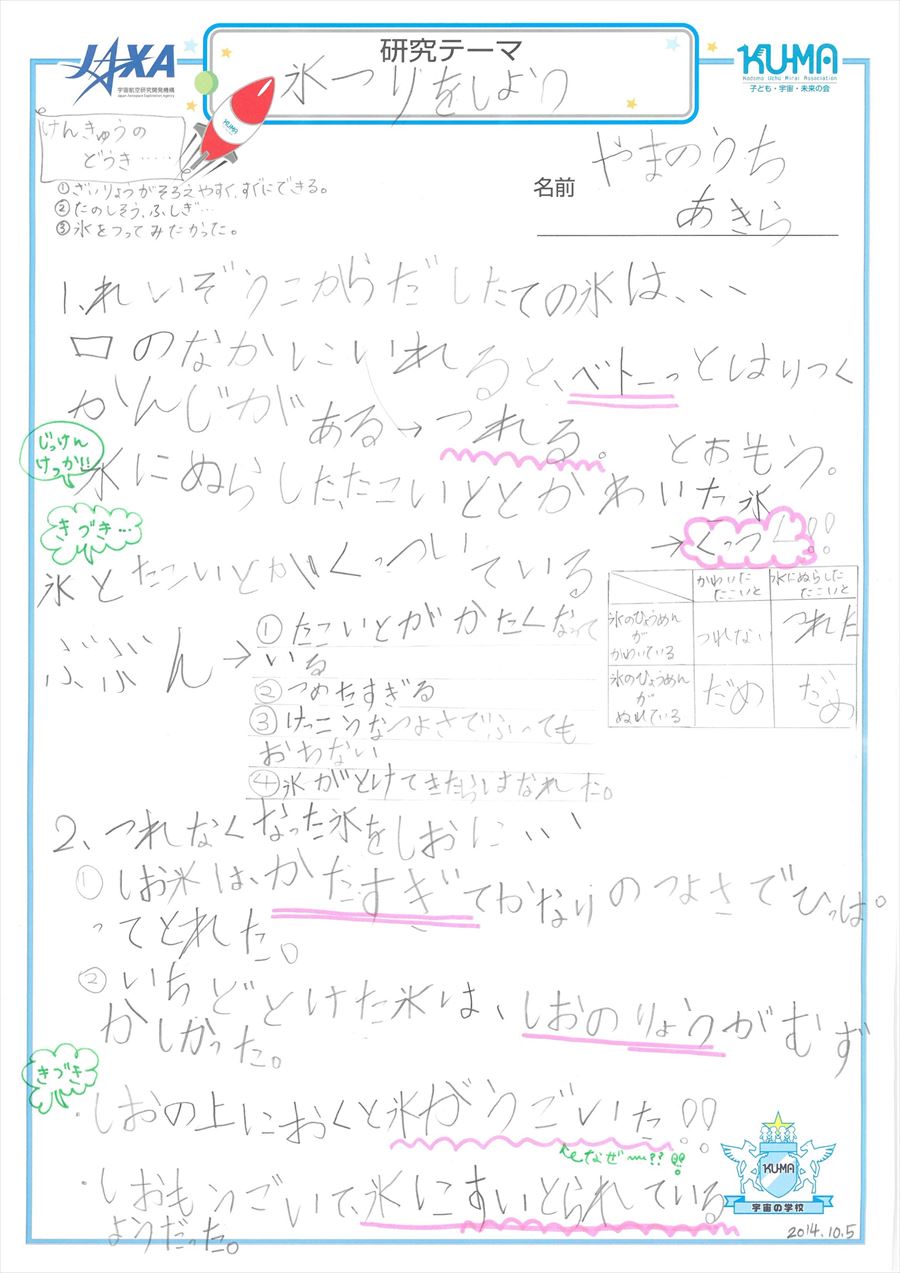 JAXA
宇宙航空研究開発機構
Japan Aerospace Exploration Agency
研究テーマ
氷つりをしよう
KU-MA
Kodomo Uchu Mirai Association
子ども・宇宙・未来の会
KU-MA
けんきゅうの
どうき……
①ざいりょうがそろえやすく、すぐにできる。
②たのしそう、ふしぎ…
③氷をつってみたかった。
名前
やまのうち
あきら
1、れいぞうこからだしたての氷は、、、
口のなかにいれると、ベトーっとはりつく
かんじがある→つれる。とおもう。
じっけん
けっか!!
水にぬらしたたこいととかわいた氷
→くっつく!!
きづき…
氷とたこいとがくっついている
ぶぶん→
①たこいとがかたくなって
いる
②つめたすぎる
③けっこうなつよさでふっても
おちない
④氷がとけてきたらはなれた。
かわいた
たこいと
水にぬらした
たこいと
氷のひょうめん
が
かわいている
つれない
つれた
氷のひょうめん
が
ぬれている
だめ
だめ
2、つれなくなった氷をしおに、、、
①しお氷は、かたすぎてかなりのつよさでひっぱ
ってとれた。
②いちどとけた氷は、しおのりょうがむず
かしかった。
きづき
・しおの上におくと氷がうごいた!!
なぜ〜??!!
・しおもうごいて、氷にすいとられている
ようだった。
KU-MA
宇宙の学校
2014.10.5